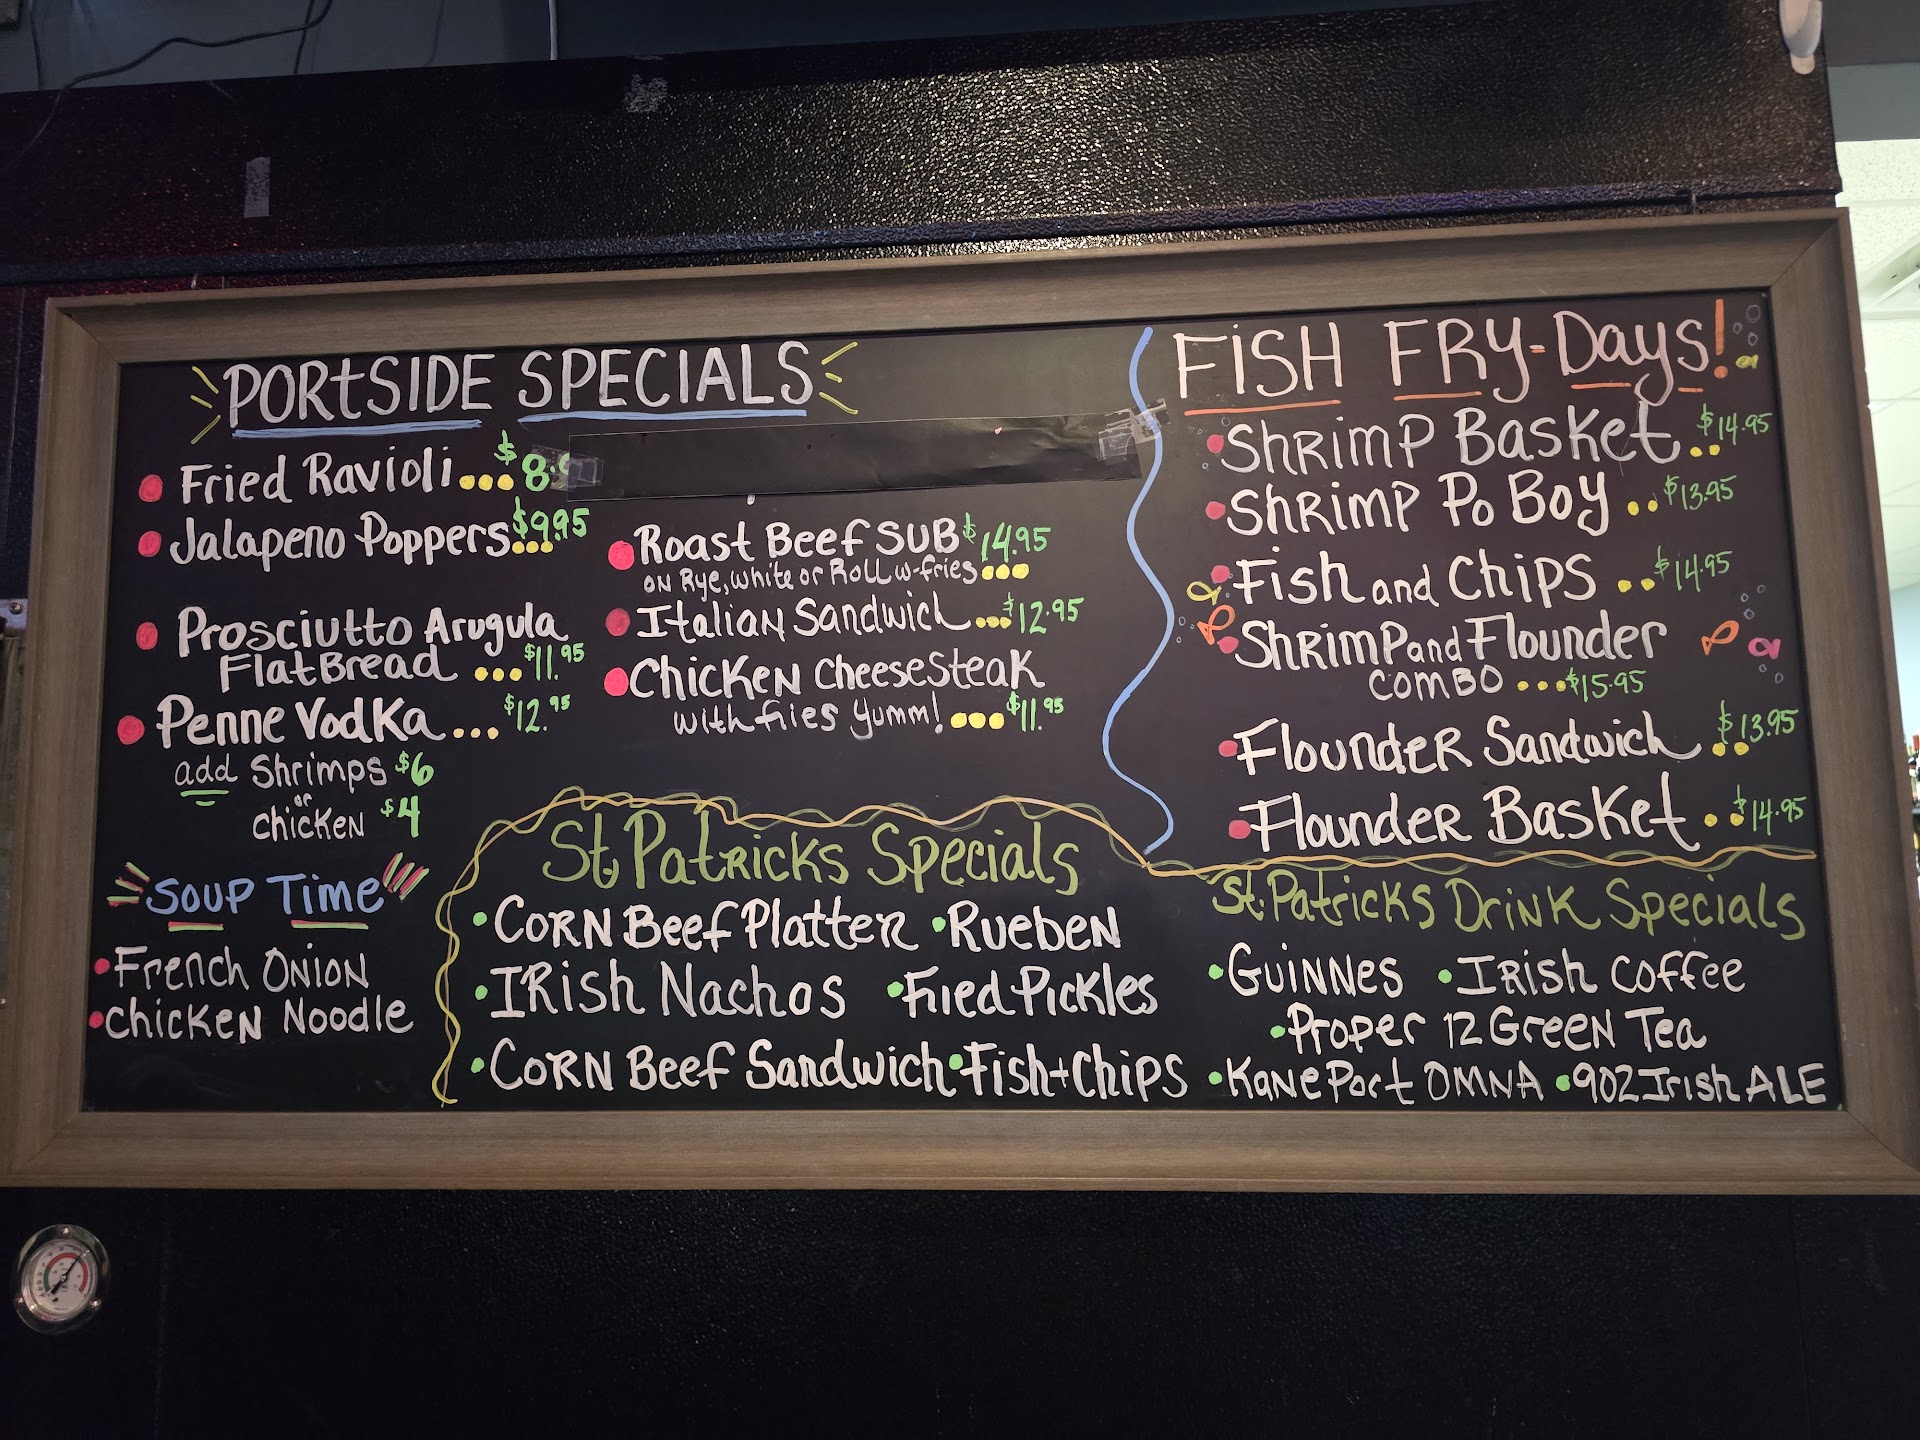 PORtSIDE SPECIALS
Fried Ravioli...$8.
Jalapeno Poppers...$9.95
Prosciutto Arugula
FlatBread ...$11.95
Penne Vodka...$12.95
add Shrimps $6
or
chicken $4
Roast Beef SUB $14.95
on Rye, white or Roll w-fries...
Italian Sandwich...$12.95
Chicken cheesesteak
with fries yumm!...$11.95
SOUP TIME
French Onion
Chicken Noodle
FISH FRY-Days!
Shrimp Basket..$14.95
Shrimp Po Boy..$13.95
Fish and Chips..$14.95
Shrimp and Flounder
combo...$15.95
Flounder Sandwich..$13.95
Flounder Basket..$14.95
St. Patricks Specials
•Corn Beef Platter •Rueben
•Irish Nachos •Fried Pickles
•Corn Beef Sandwich •Fish+Chips
St. Patricks Drink Specials
•Guinnes •Irish Coffee
•Proper 12 Green Tea
•Kane Port OMNA •902 Irish ALE